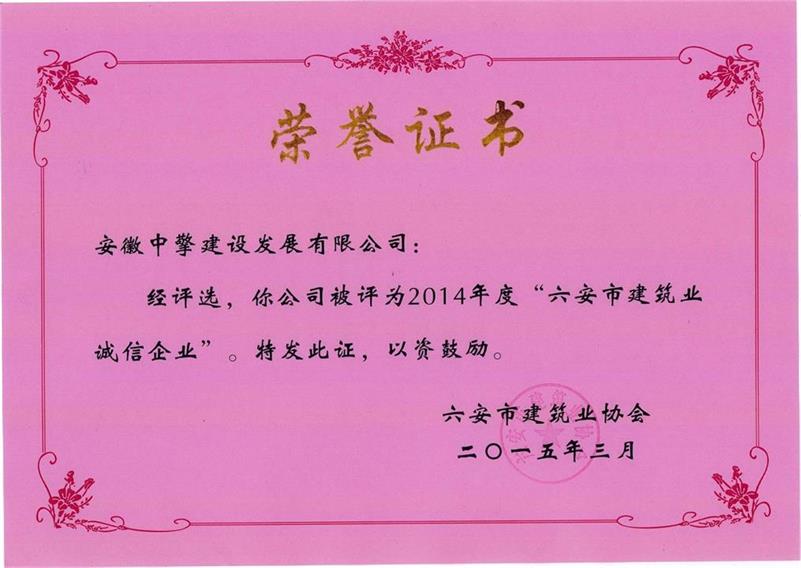 荣誉证书
安徽中擎建设发展有限公司：
经评选，你公司被评为2014年度“六安市建筑业
诚信企业”。特发此证，以资鼓励。
六安市建筑业协会
二〇一五年三月